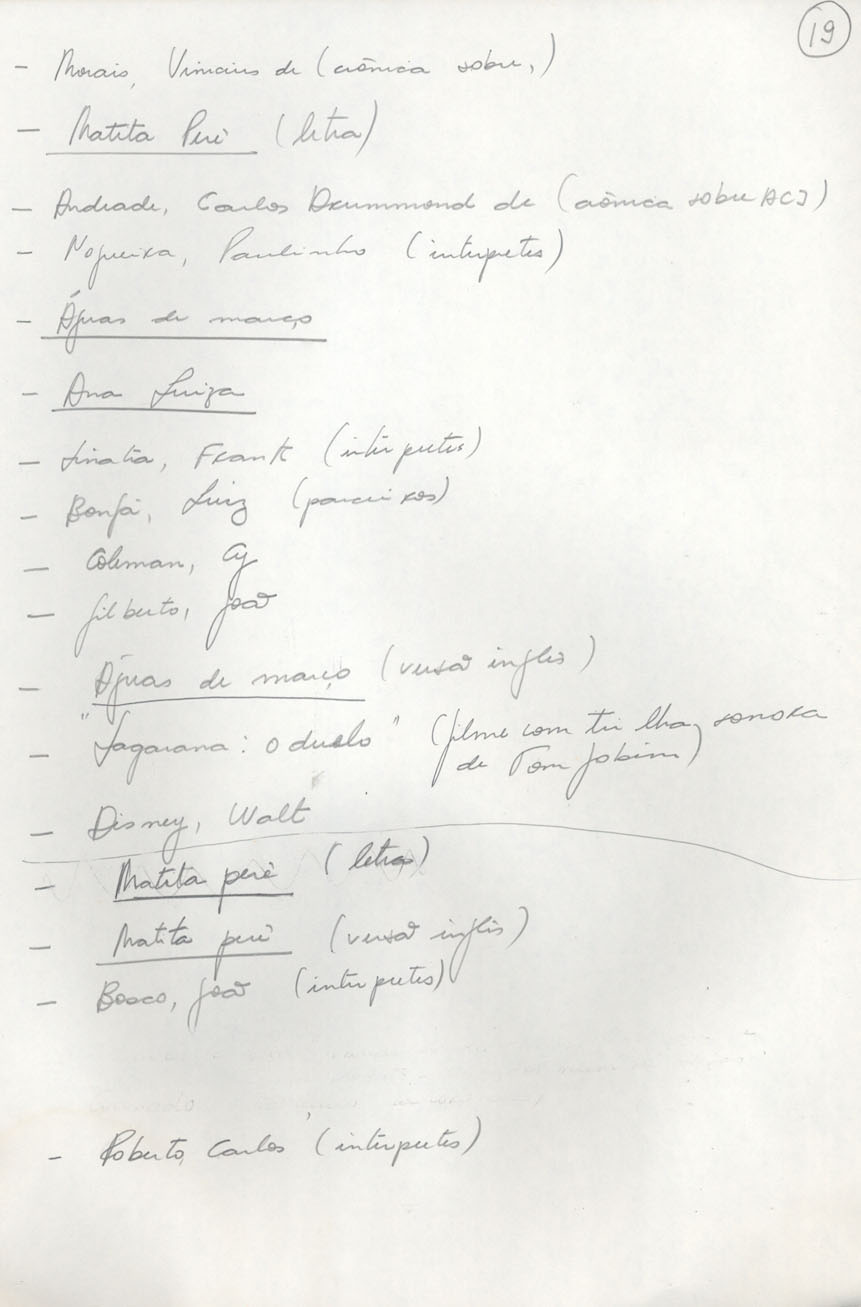 19
- Morais, Vinicius de (crônica sobre,)
- Matita Perê (letra)
- Andrade, Carlos Drummond de (crônica sobre ACJ)
- Nogueira, Paulinho (intérpretes)
- Águas de março
- Ana Luiza
- Sinatra, Frank (intérpretes)
- Bonfá, Luiz (parceiros)
- Coleman, Cy
- Gilberto, João
- Águas de março (versão inglês)
- "Sagarana: o duelo" (filme com trilha sonora
de Tom Jobim)
- Disney, Walt
- Matita perê (letra)
- Matita perê (versão inglês)
- Bosco, João (intérpretes)
- Roberto, Carlos (intérpretes)